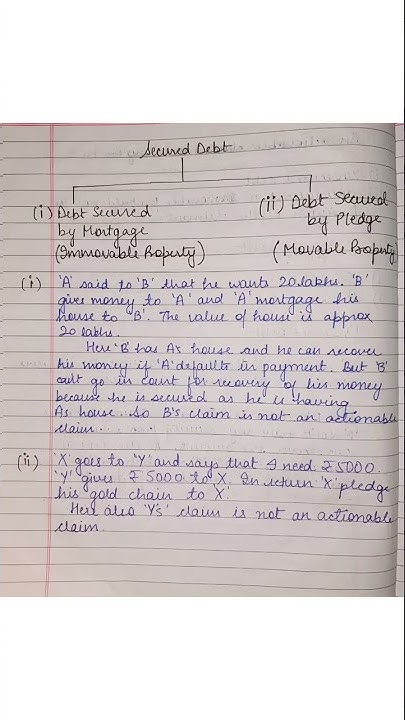 Secured Debt
(i) Debt Secured
by Mortgage
(Immovable Property)
(ii) Debt Secured
by Pledge
(Movable Property)
(i) 'A' said to 'B' that he wants 20 lakhs. 'B'
gives money to 'A' and 'A' mortgage his
house to 'B'. The value of house is approx
20 lakhs.
Here 'B' has A's house and he can recover
his money if 'A' defaults in payment. But 'B'
can't go in court for recovery of his money
because he is secured as he is having
A's house. So B's claim is not an actionable
claim.
(ii) 'X' goes to 'Y' and says that I need ₹5000.
'Y' gives ₹5000 to X. In return 'X' pledge
his gold chain to X'.
Here also 'Y's' claim is not an actionable
claim.